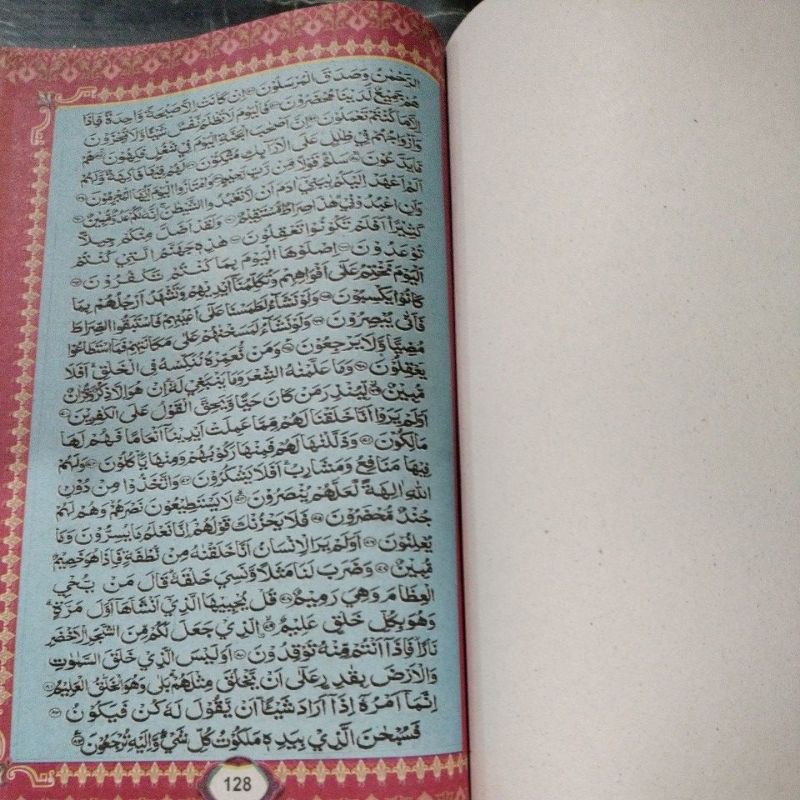 الرَّحْمٰنُ وَصَدَقَ الْمُرْسَلُوْنَ ۝ اِنْ كَانَتْ اِلَّاصَيْحَةً وَّاحِدَةً فَاِذَا
هُمْ جَمِيْعٌ لَّدَيْنَا مُحْضَرُوْنَ ۝ فَالْيَوْمَ لَاتُظْلَمُ نَفْسٌ شَيْئًا وَّلَا تُجْزَوْنَ
اِلَّا مَا كُنْتُمْ تَعْمَلُوْنَ ۝ اِنَّ اَصْحٰبَ الْجَنَّةِ الْيَوْمَ فِيْ شُغُلٍ فٰكِهُوْنَ ۝ هُمْ
وَاَزْوَاجُهُمْ فِيْ ظِلٰلٍ عَلَى الْاَرَاۤىِٕكِ مُتَّكِـُٔوْنَ ۝ لَهُمْ فِيْهَا فَاكِهَةٌ وَّلَهُمْ
مَّايَدَّعُوْنَ ۝ سَلٰمٌ قَوْلًا مِّنْ رَّبٍّ رَّحِيْمٍ ۝ وَامْتَازُوا الْيَوْمَ اَيُّهَا الْمُجْرِمُوْنَ ۝
اَلَمْ اَعْهَدْ اِلَيْكُمْ يٰبَنِيْٓ اٰدَمَ اَنْ لَّا تَعْبُدُوا الشَّيْطٰنَ اِنَّهٗ لَكُمْ عَدُوٌّ مُّبِيْنٌ ۝
وَاَنِ اعْبُدُوْنِيْ هٰذَا صِرَاطٌ مُّسْتَقِيْمٌ ۝ وَلَقَدْ اَضَلَّ مِنْكُمْ جِبِلًّا
كَثِيْرًا اَفَلَمْ تَكُوْنُوْا تَعْقِلُوْنَ ۝ هٰذِهٖ جَهَنَّمُ الَّتِيْ كُنْتُمْ
تُوْعَدُوْنَ ۝ اِصْلَوْهَا الْيَوْمَ بِمَا كُنْتُمْ تَكْفُرُوْنَ ۝
اَلْيَوْمَ نَخْتِمُ عَلٰٓى اَفْوَاهِهِمْ وَتُكَلِّمُنَآ اَيْدِيْهِمْ وَتَشْهَدُ اَرْجُلُهُمْ بِمَا
كَانُوْا يَكْسِبُوْنَ ۝ وَلَوْ نَشَاۤءُ لَطَمَسْنَا عَلٰٓى اَعْيُنِهِمْ فَاسْتَبَقُوا الصِّرَاطَ
فَاَنّٰى يُبْصِرُوْنَ ۝ وَلَوْ نَشَاۤءُ لَمَسَخْنٰهُمْ عَلٰى مَكَانَتِهِمْ فَمَا اسْتَطَاعُوْا
مُضِيًّا وَّلَا يَرْجِعُوْنَ ۝ وَمَنْ نُّعَمِّرْهُ نُنَكِّسْهُ فِى الْخَلْقِ اَفَلَا
يَعْقِلُوْنَ ۝ وَمَا عَلَّمْنٰهُ الشِّعْرَ وَمَا يَنْۢبَغِيْ لَهٗ اِنْ هُوَ اِلَّا ذِكْرٌ وَّقُرْاٰنٌ
مُّبِيْنٌ ۝ لِّيُنْذِرَ مَنْ كَانَ حَيًّا وَّيَحِقَّ الْقَوْلُ عَلَى الْكٰفِرِيْنَ ۝
اَوَلَمْ يَرَوْا اَنَّا خَلَقْنَا لَهُمْ مِّمَّا عَمِلَتْ اَيْدِيْنَآ اَنْعَامًا فَهُمْ لَهَا
مَالِكُوْنَ ۝ وَذَلَّلْنٰهَا لَهُمْ فَمِنْهَا رَكُوْبُهُمْ وَمِنْهَا يَأْكُلُوْنَ ۝ وَلَهُمْ
فِيْهَا مَنَافِعُ وَمَشَارِبُ اَفَلَا يَشْكُرُوْنَ ۝ وَاتَّخَذُوْا مِنْ دُوْنِ
اللّٰهِ اٰلِهَةً لَّعَلَّهُمْ يُنْصَرُوْنَ ۝ لَا يَسْتَطِيْعُوْنَ نَصْرَهُمْ وَهُمْ لَهُمْ
جُنْدٌ مُّحْضَرُوْنَ ۝ فَلَا يَحْزُنْكَ قَوْلُهُمْ اِنَّا نَعْلَمُ مَا يُسِرُّوْنَ وَمَا
يُعْلِنُوْنَ ۝ اَوَلَمْ يَرَ الْاِنْسَانُ اَنَّا خَلَقْنٰهُ مِنْ نُّطْفَةٍ فَاِذَا هُوَ خَصِيْمٌ
مُّبِيْنٌ ۝ وَضَرَبَ لَنَا مَثَلًا وَّنَسِيَ خَلْقَهٗ قَالَ مَنْ يُّحْيِ
الْعِظَامَ وَهِيَ رَمِيْمٌ ۝ قُلْ يُحْيِيْهَا الَّذِيْٓ اَنْشَاَهَآ اَوَّلَ مَرَّةٍ
وَهُوَ بِكُلِّ خَلْقٍ عَلِيْمٌ ۝ الَّذِيْ جَعَلَ لَكُمْ مِّنَ الشَّجَرِ الْاَخْضَرِ
نَارًا فَاِذَآ اَنْتُمْ مِّنْهُ تُوْقِدُوْنَ ۝ اَوَلَيْسَ الَّذِيْ خَلَقَ السَّمٰوٰتِ
وَالْاَرْضَ بِقٰدِرٍ عَلٰٓى اَنْ يَّخْلُقَ مِثْلَهُمْ بَلٰى وَهُوَ الْخَلّٰقُ الْعَلِيْمُ ۝
اِنَّمَآ اَمْرُهٗٓ اِذَآ اَرَادَ شَيْـًٔا اَنْ يَّقُوْلَ لَهٗ كُنْ فَيَكُوْنُ ۝
فَسُبْحٰنَ الَّذِيْ بِيَدِهٖ مَلَكُوْتُ كُلِّ شَيْءٍ وَّاِلَيْهِ تُرْجَعُوْنَ ۝
128